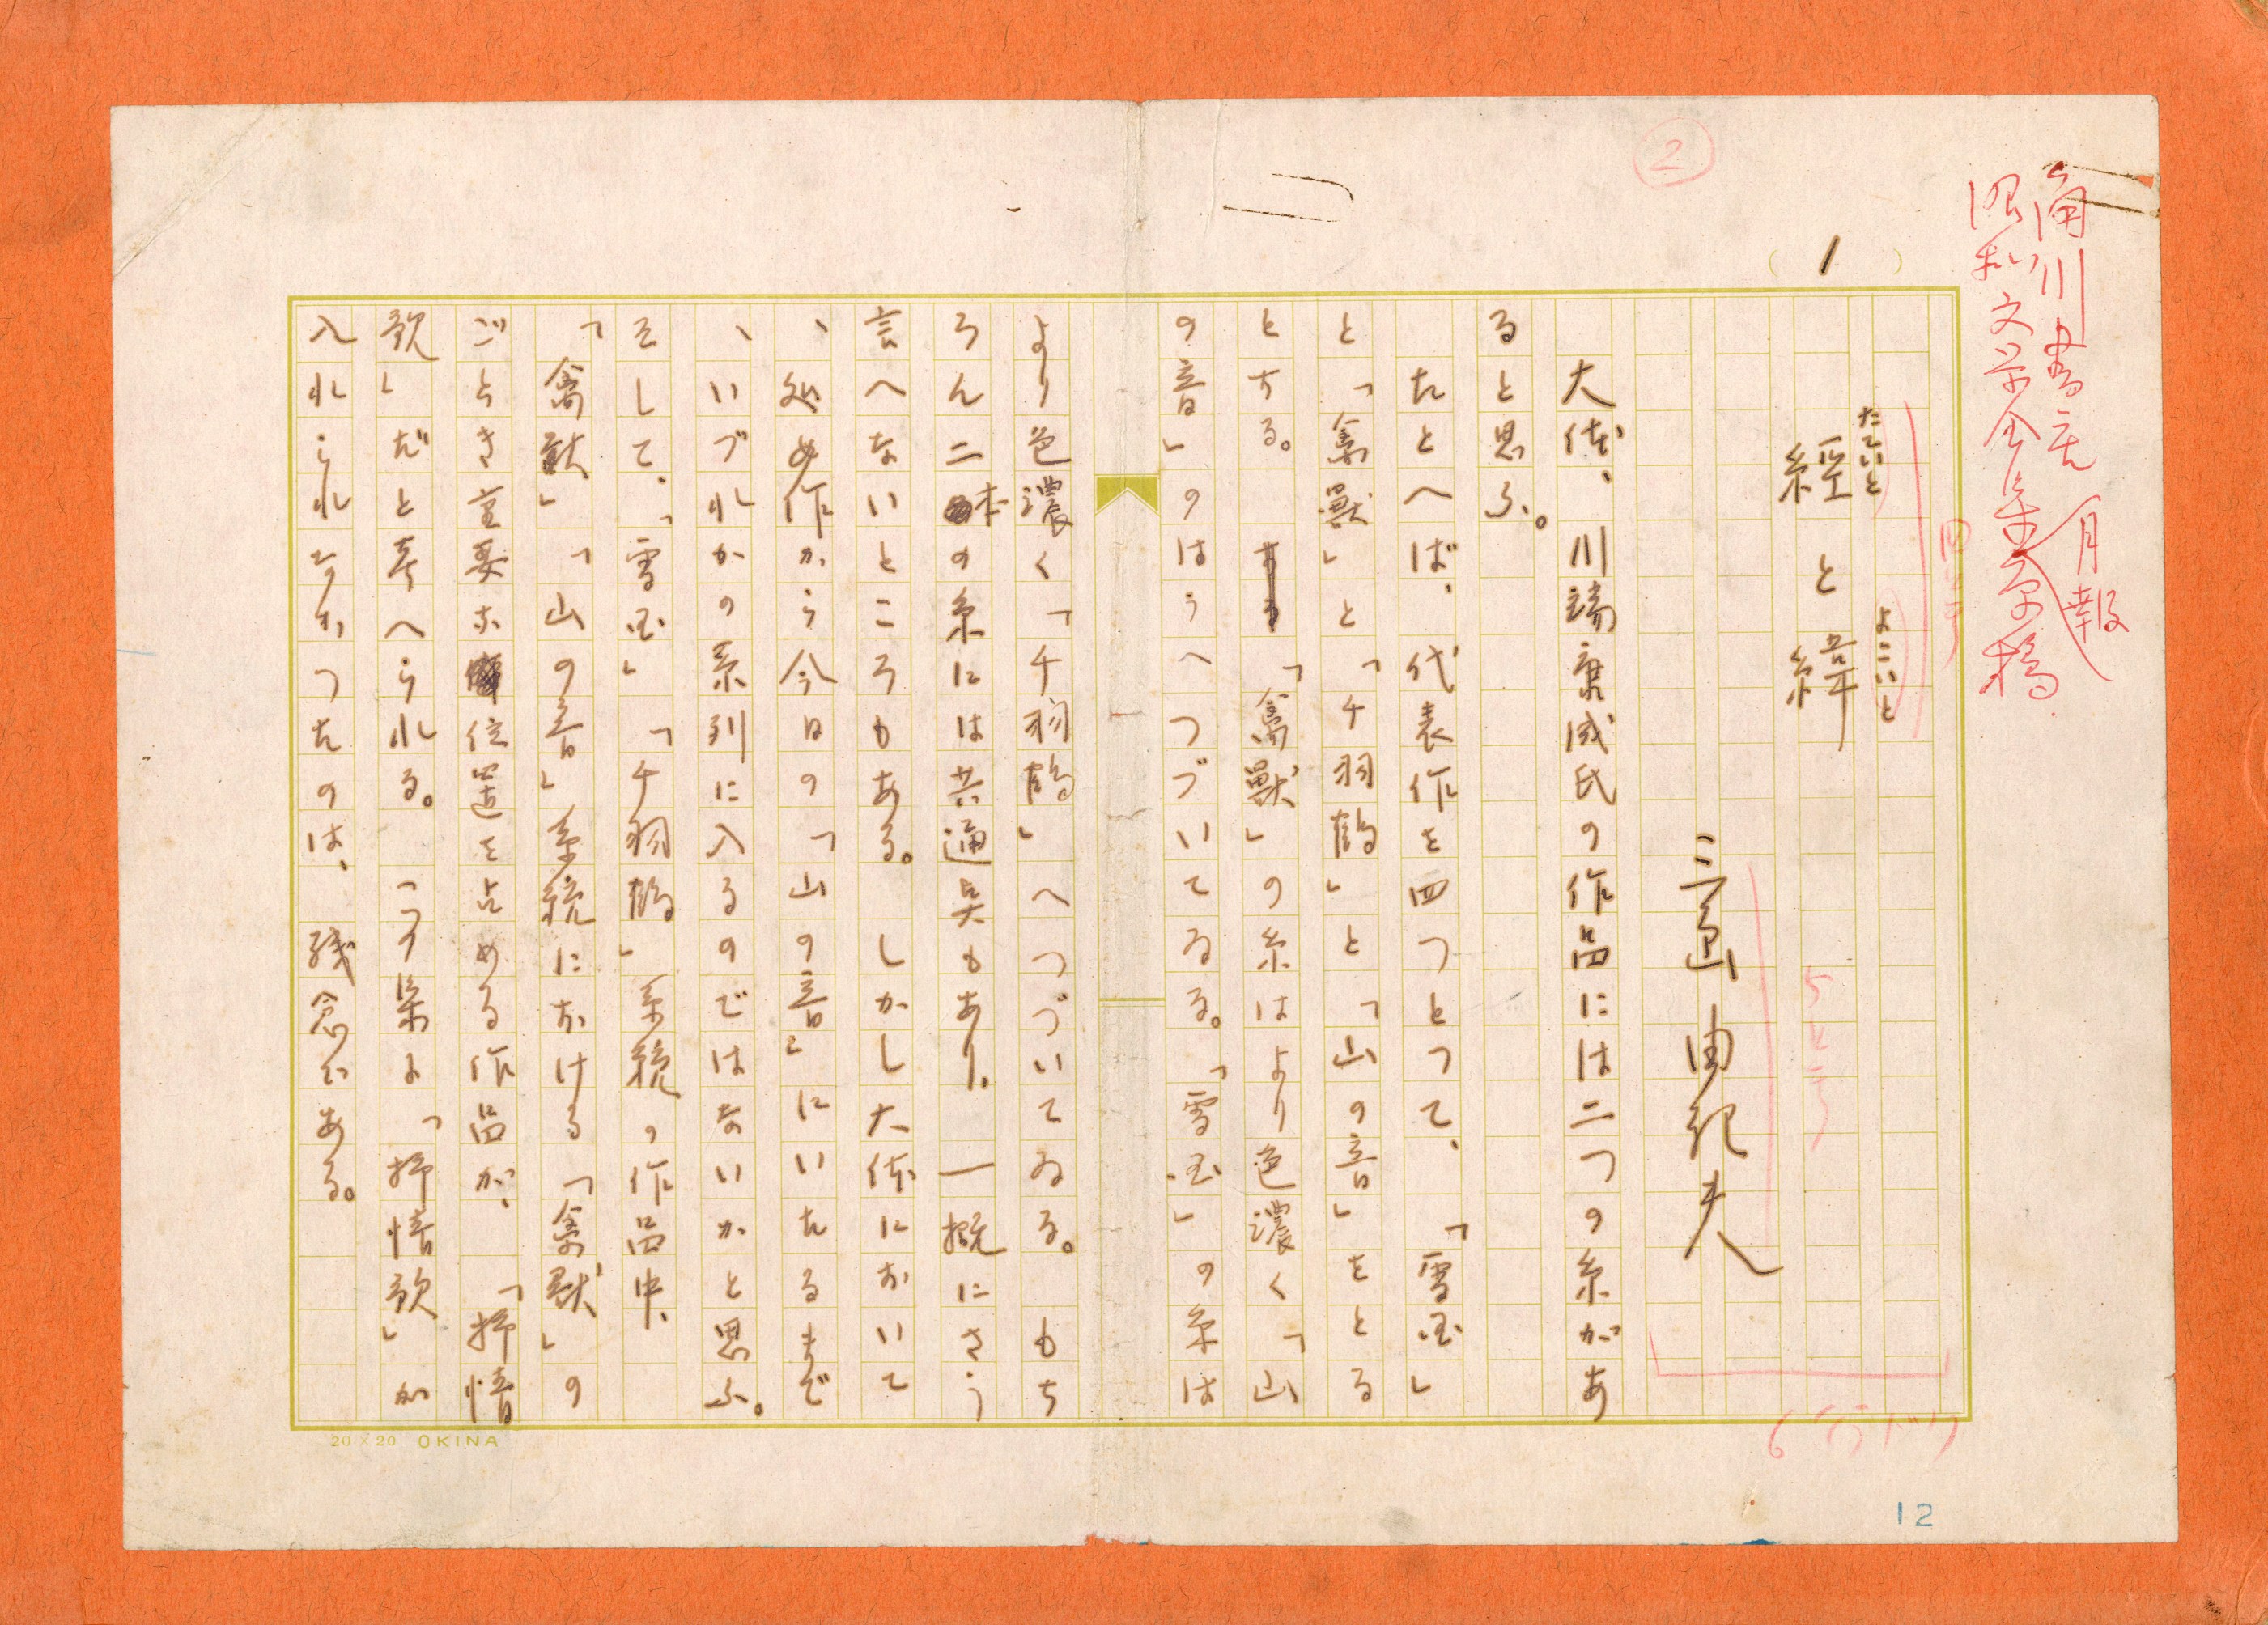 角川書店 月報
昭和文学全集原稿
②
1
経と緯
たていと よこいと
三島由紀夫
大体、川端康成氏の作品には二つの糸があ
ると思ふ。
たとへば、代表作を四つとつて、「雪国」
と「禽獣」と「千羽鶴」と「山の音」をとる
とする。「禽獣」の糸はより色濃く「山
の音」のはうへつづいてゐる。「雪国」の糸は
より色濃く「千羽鶴」へつづいてゐる。もち
ろん二本の糸には共通点もあり、一概にさう
言へないところもある。しかし大体において
、処女作から今日の「山の音」にいたるまで
、いづれかの系列に入るのではないかと思ふ。
そして、「雪国」「千羽鶴」系統の作品中、
「禽獣」「山の音」系統における「禽獣」の
ごとき重要な位置を占める作品が、「抒情
歌」だと考へられる。この集に「抒情歌」が
入れられなかつたのは、残念である。
20×20 OKINA
12